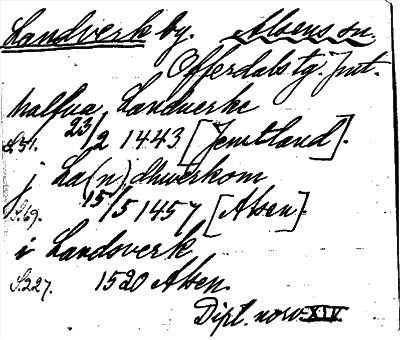 Landverk by. Alsens sn.
Offerdals tg. Jmt.
halfua Landuerke
S.51. 23/2 1443 [Jemtland].
j La(n)dhwerkom
S.69. 15/5 1457 [Alsen].
i Landsverk
S.227. 1520 Alsen.
Dipl. norv. XIV.